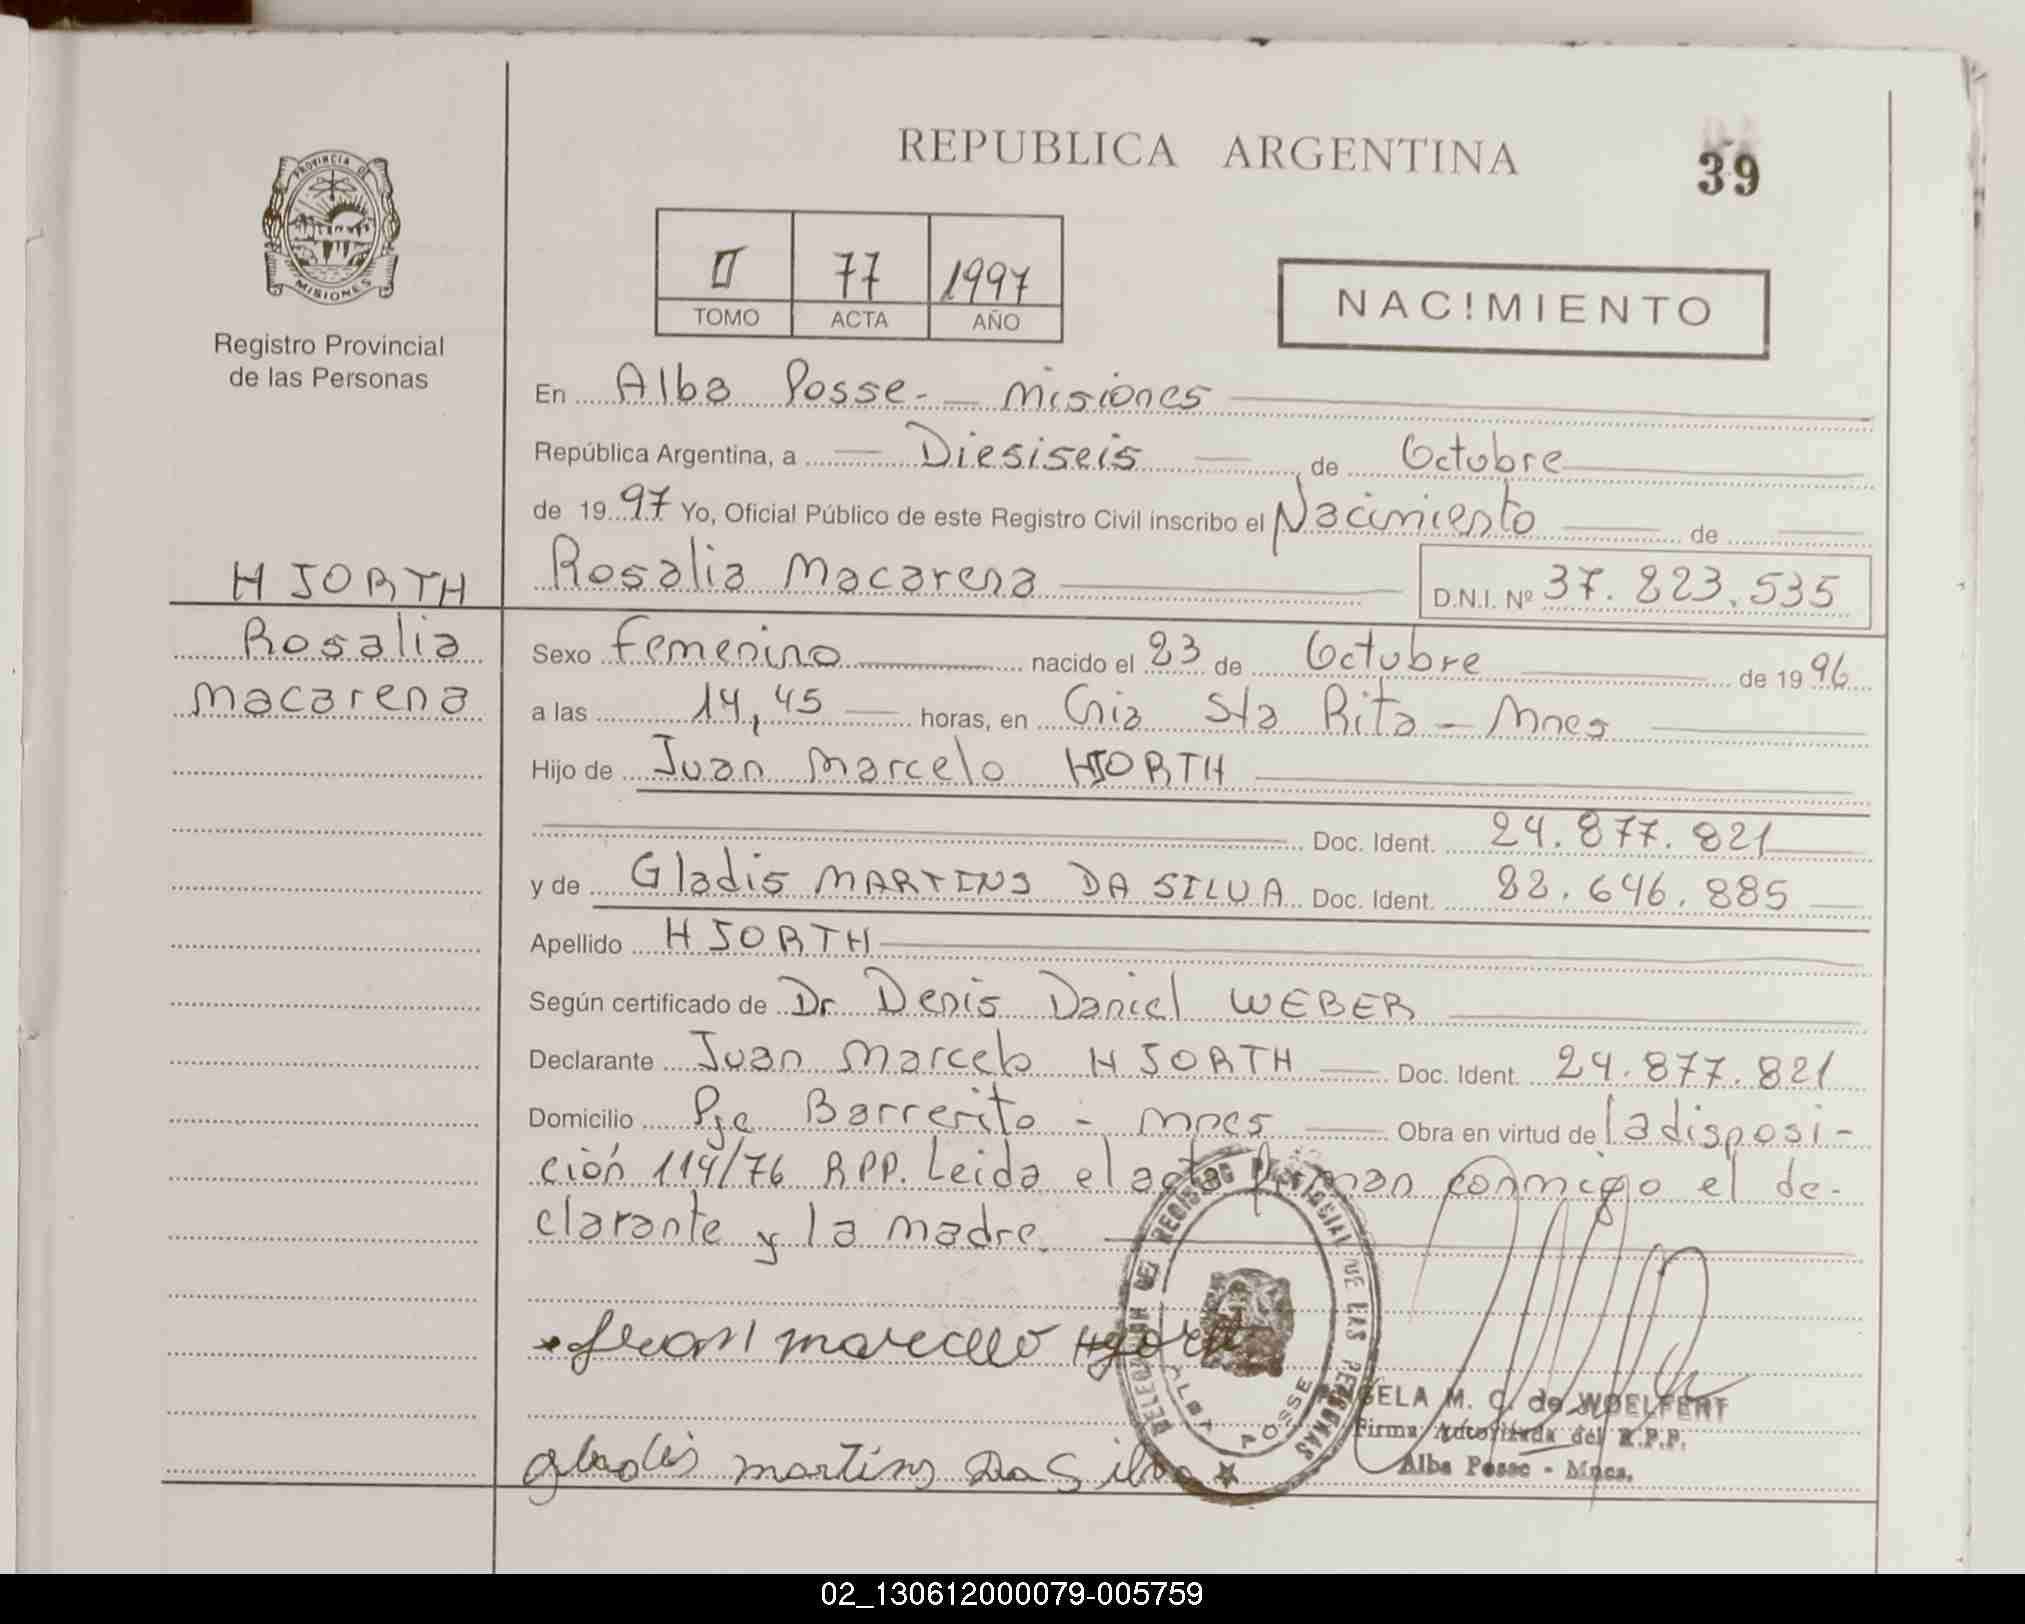 REPUBLICA ARGENTINA
39
PROVINCIA DE
MISIONES
Registro Provincial
de las Personas
II 77 1997
TOMO ACTA AÑO
NACIMIENTO
En Alba Posse - Misiones
República Argentina, a Diesiseis de Octubre
de 1997 Yo, Oficial Público de este Registro Civil inscribo el Nacimiento de
HJORTH
Rosalia Macarena D.N.I. Nº 37.823.535
Rosalia
Macarena
Sexo Femenino nacido el 23 de Octubre de 1996
a las 14,45 horas, en Cnia Sta Rita - Mnes
Hijo de Juan Marcelo HJORTH
Doc. Ident. 24.877.821
y de Gladis MARTINS DA SILVA Doc. Ident. 82.646.885
Apellido HJORTH
Según certificado de Dr. Denis Daniel WEBER
Declarante Juan Marcelo HJORTH Doc. Ident. 24.877.821
Domicilio Pje Barrerito - Mnes Obra en virtud de la disposi-
ción 114/76 RPP. Leida el acta firman conmigo el de-
clarante y la madre.
DELEGACION DEL REGISTRO PROVINCIAL DE LAS PERSONAS
ALBA POSSE
Juan marcelo Hjorth
GELA M. C. de WOELFERT
Firma Autorizada del R.P.P.
Alba Posse - Mnes.
gladis martins Da Silva
02_130612000079-005759